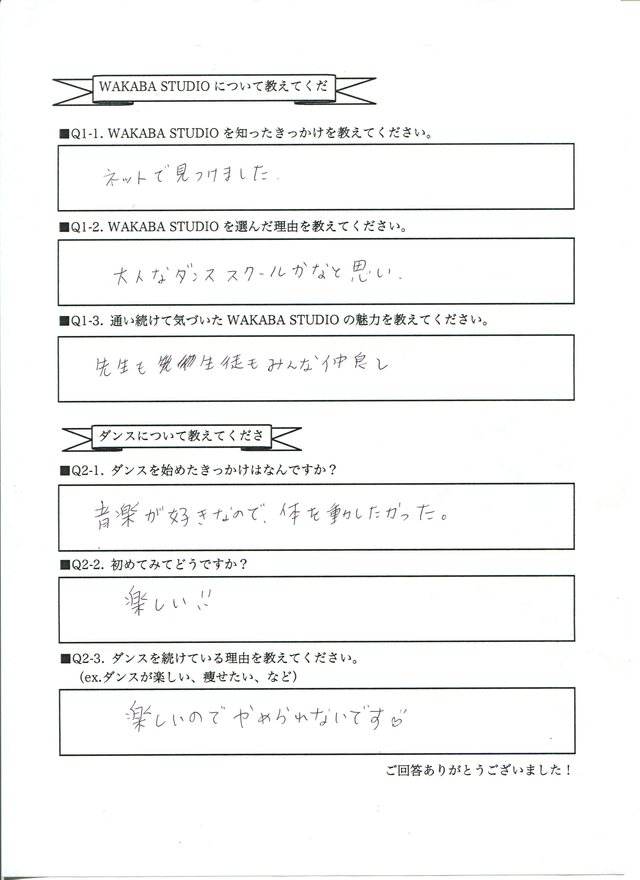 WAKABA STUDIO について教えてくだ
■Q1-1. WAKABA STUDIO を知ったきっかけを教えてください。
ネットで見つけました.
■Q1-2. WAKABA STUDIO を選んだ理由を教えてください。
大人なダンススクールかなと思い.
■Q1-3. 通い続けて気づいた WAKABA STUDIO の魅力を教えてください。
先生も生徒もみんな仲良し
ダンスについて教えてくださ
■Q2-1. ダンスを始めたきっかけはなんですか？
音楽が好きなので、体を動したかった。
■Q2-2. 初めてみてどうですか？
楽しい!!
■Q2-3. ダンスを続けている理由を教えてください。
（ex.ダンスが楽しい、痩せたい、など）
楽しいのでやめられないです♡
ご回答ありがとうございました！